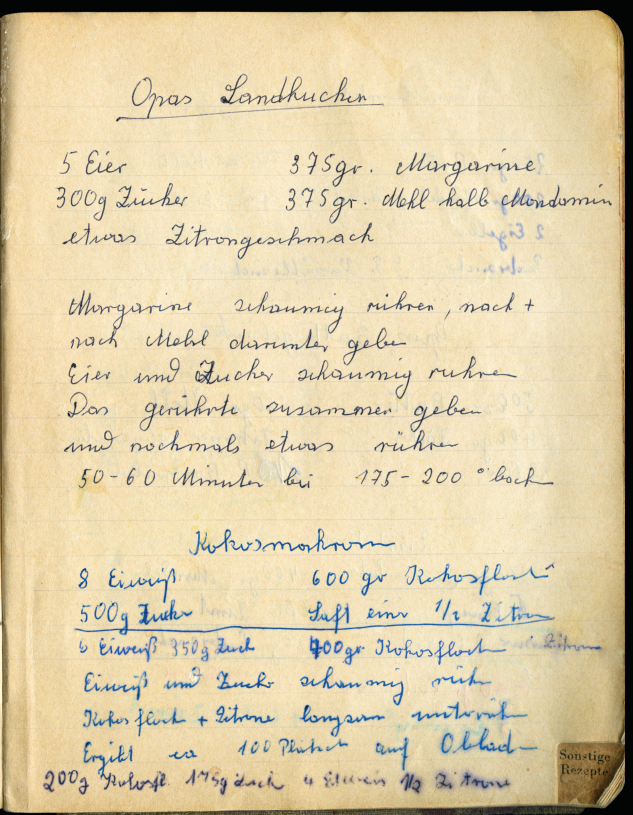 Opas Sandkuchen
5 Eier 375gr. Margarine
300g Zucker 375gr. Mehl halb Mondamin
etwas Zitrongeschmack
Margarine schaumig rühren, nach +
nach Mehl darunter geben
Eier und Zucker schaumig rühren
Das gerührte zusammen geben
und nochmals etwas rühren
50-60 Minuten bei 175-200° backen
Kokosmakronen
8 Eiweiß 600 gr Kokosflock
500g Zucker Saft einer 1/2 Zitrone
6 Eiweiß 350g Zuck 400gr Kokosflock Zitrone
Eiweiß und Zucker schaumig rühren
Kokosflock + Zitrone langsam unterrühren
Ergibt ca 100 Plätzch auf Obladen
200g Kokosfl. 175g Zuck 4 Eiweis 1/2 Zitrone
Sonstige
Rezepte